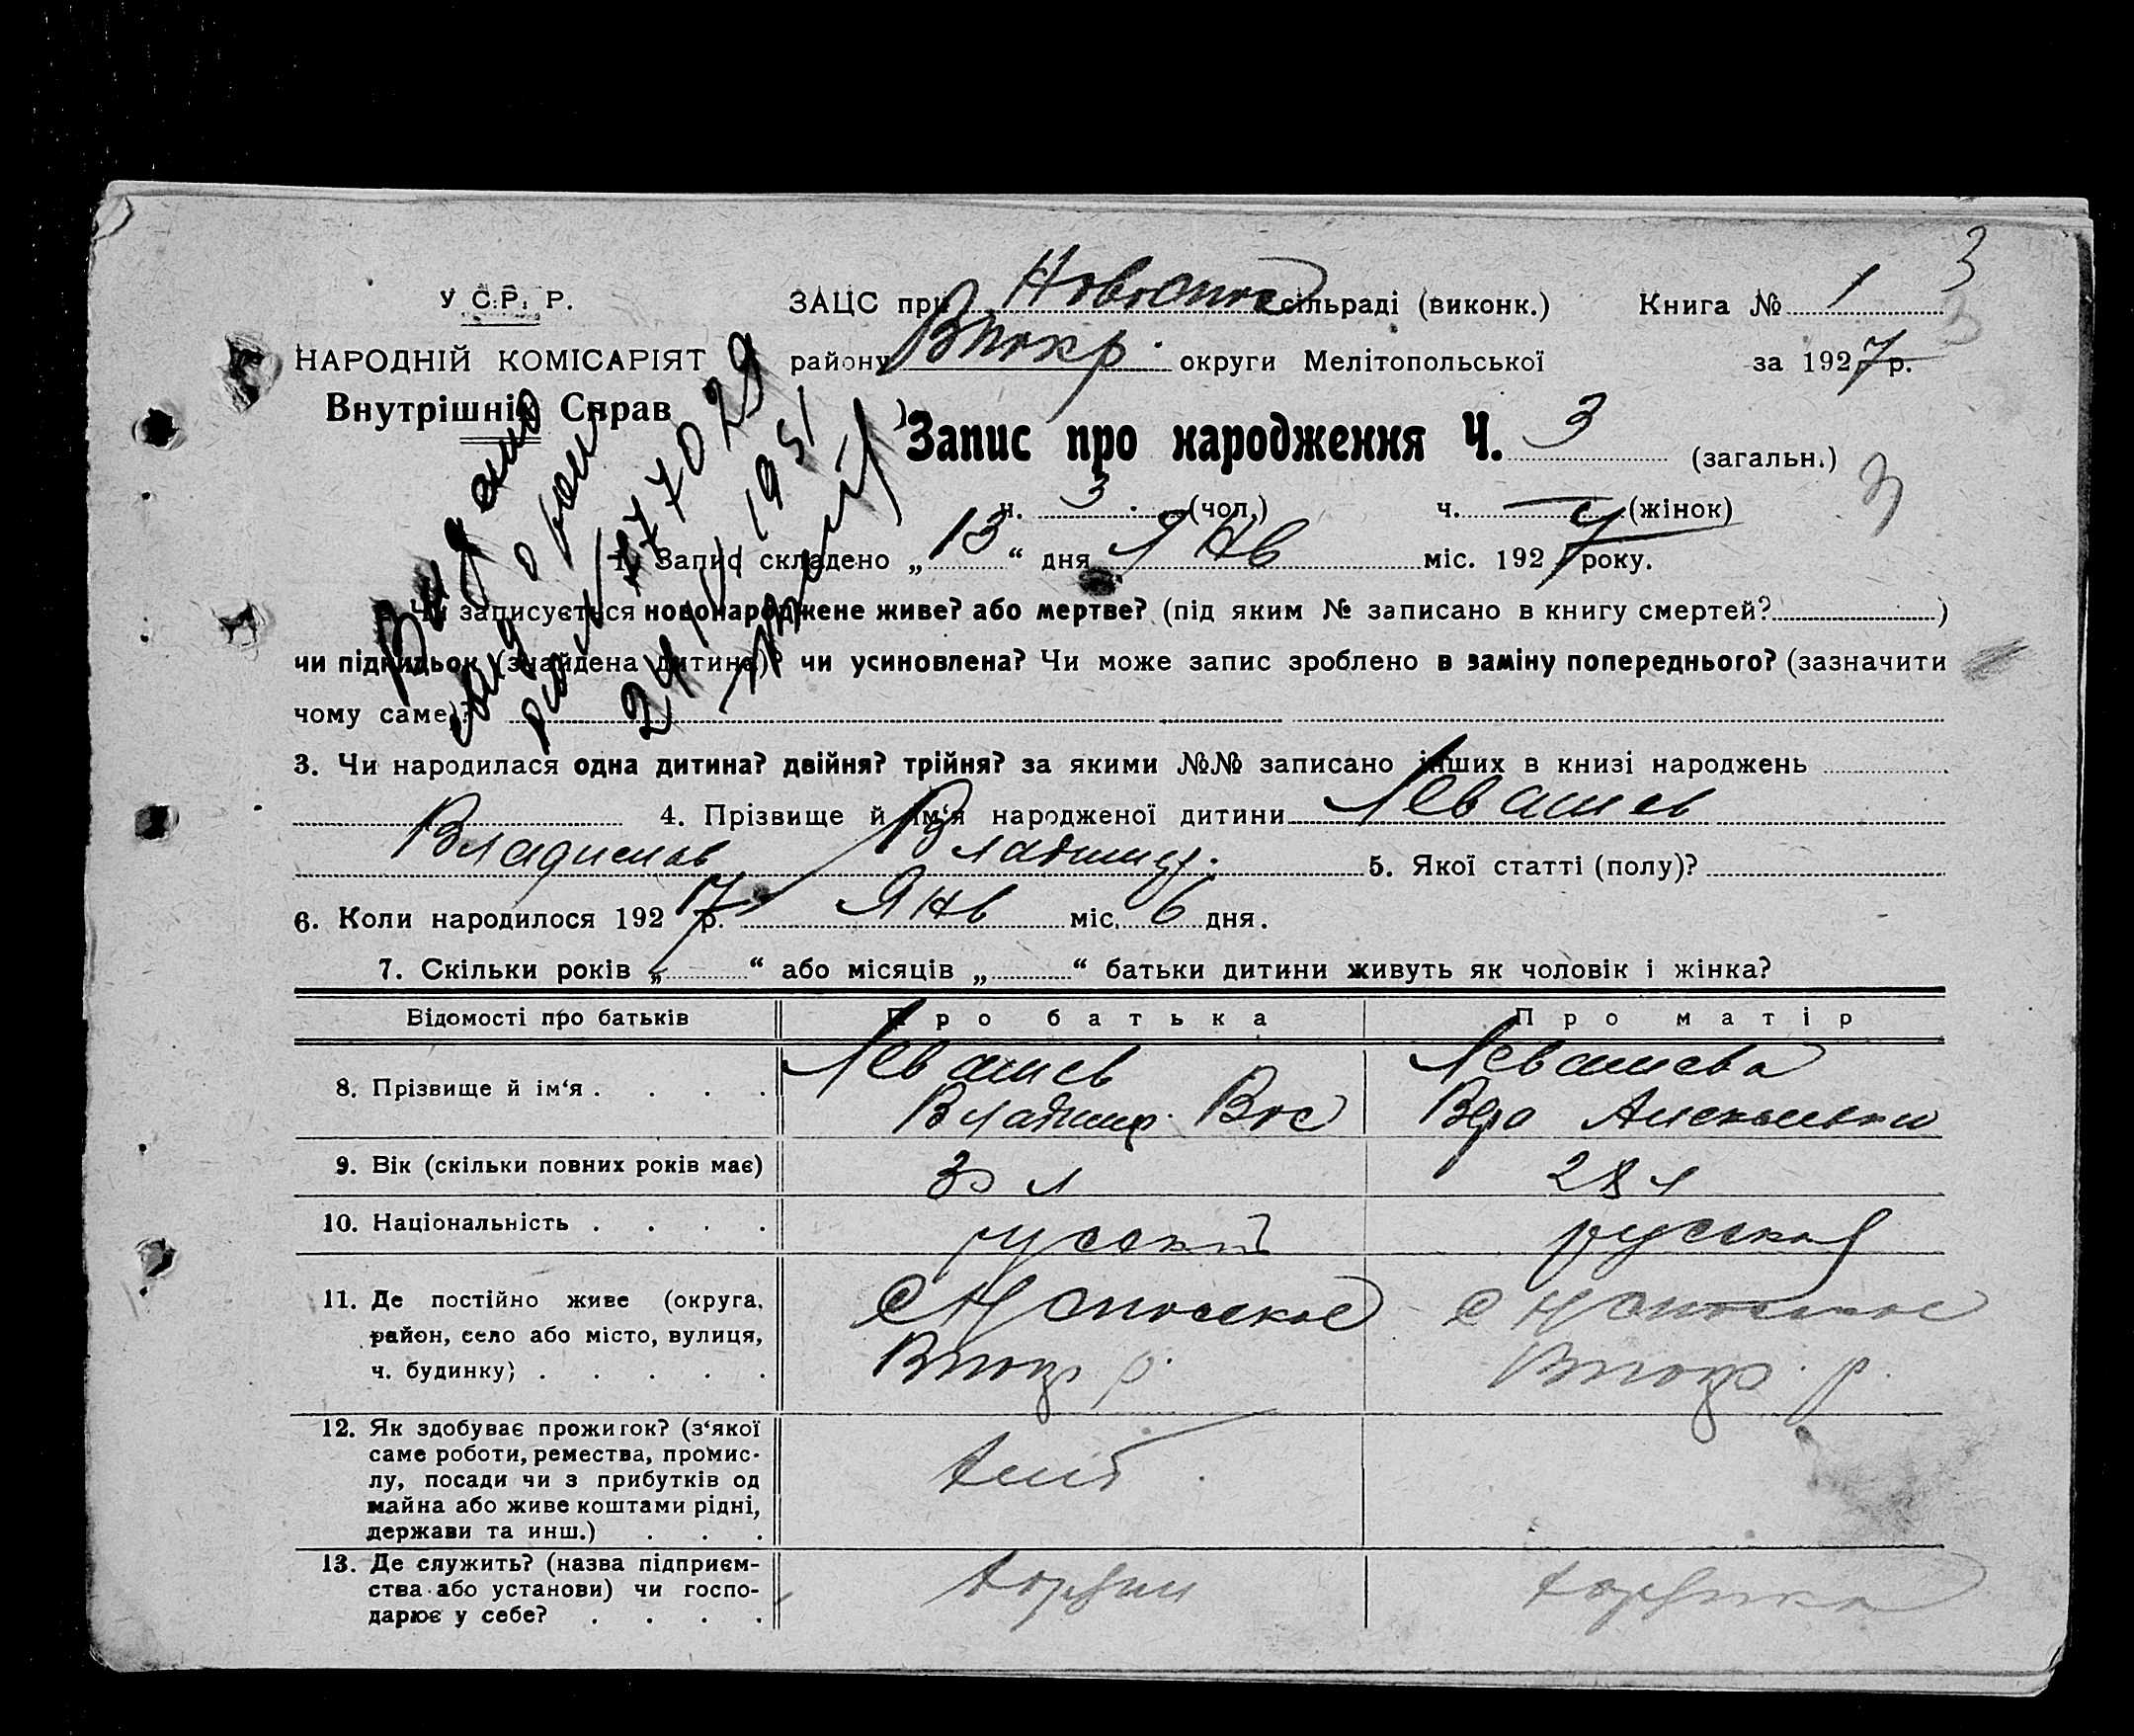 3
У С.Р. Р.
ЗАЦС при Новоспас сільраді (виконк.)
Книга № 1
НАРОДНІЙ КОМІСАРІЯТ
району Впокр. округи Мелітопольської
за 1927 р.
Внутрішніх Справ
Запис про народження Ч. 3 (загальн.)
3
ч. 3 (чол.) ч. — (жінок)
1. Запис складено „ 13 “ дня Янв міс. 1927 року.
Видано
24/V 1951
2. Чи записується новонароджене живе? або мертве? (під яким № записано в книгу смертей? )
чи підкидьок (знайдена дитина)? чи усиновлена? Чи може запис зроблено в заміну попереднього? (зазначити
чому саме)?
3. Чи народилася одна дитина? двійня? трійня? за якими №№ записано інших в книзі народжень
4. Прізвище й ім‘я народженої дитини Левашев
Владислав Владимир. 5. Якої статті (полу)?
6. Коли народилося 1927 р. Янв міс. 6 дня.
7. Скільки років „ “ або місяців „ “ батьки дитини живуть як чоловік і жінка?
Відомості про батьків
Про батька
Про матір
8. Прізвище й ім‘я . . . .
Левашев
Владимир Вас
Левашева
Вера
9. Вік (скільки повних років має)
30 л
28 л
10. Національність . . . .
русский
русская
11. Де постійно живе (округа,
район, село або місто, вулиця,
ч. будинку) . . . . .
с Н Спасское
Впокр р.
с Н Спасское
Впокр. р.
12. Як здобуває прожиток? (з‘якої
саме роботи, ремества, промис-
лу, посади чи з прибутків од
майна або живе коштами рідні,
держави та инш.) . . .
13. Де служить? (назва підприєм-
ства або установи) чи госпо-
дарює у себе? . . . .